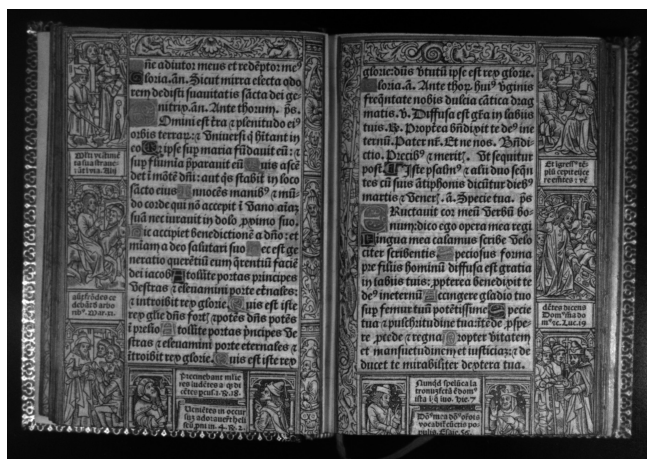 ñe adiutor meus et redẽptor meꝰ
Gloria.añ. Sicut mirra electa odo
rem dedisti suauitatis sãcta dei ge
nitrix.añ. Ante thorum. ps.
Domini est trã ⁊ plenitudo eiꝰ
orbis terrarꝝ: ⁊ vniuersi q̃ hitant in
eo Q ipse sup maria fũdauit eũ: ⁊
sup flumia p̃parauit eũ Quis ascẽ
det ĩ mõtẽ dñi: aut q̃s stabit in loco
sãcto eius Innocẽs manibꝰ ⁊ mũ
do corde qui nõ accepit ĩ vano aĩaꝫ
suã nec iurauit in dolo ꝓximo suo.
Hic accipiet benedictionẽ a dño: et
mĩam a deo salutari suo Hec est ge
neratio querẽtiũ eum q̃rentiũ faciẽ
dei iacob Atollite portas principes
vestras ⁊ eleuamini porte eternales:
⁊ introibit rex glorie. Quis est iste
rex glie dñs fortꝭ ⁊ potẽs dñs potẽs
ĩ prelio Atollite portas p̃ncipes ve
stras ⁊ eleuamini porte eternales ⁊
ĩtroibit rex glorie. Quis est iste rex
glorie: dñs vtutũ ipse est rex glorie.
Gloria.ã. Ante thoꝝ. huiꝰ vginis
freq̃ntate nobis dulcia cãtica drag
matis. v. Diffusa est gr̃a in labiis
tuis. ℟. Propterea bñdixit te deꝰ ine
ternũ. Pater nr̃. Et ne nos. Bñdi
ctio. Precibꝰ ⁊ meritꝭ. Ut sequitur
post. Iste psalmꝰ ⁊ alii duo seq̃n
tes cũ suis ãtiphonis dicũtur diebꝰ
martis ⁊ veneꝝ. ã. Specie tua. ps
ERuctauit cor meũ verbũ bo-
num: dico ego opera mea regi
Lingua mea calamus scribe velo
citer scribentis Speciosus forma
pre filiis hominũ diffusa est gratia
in labiis tuis: ꝓpterea benedixit te
deꝰ ineternũ Accingere gladio tuo
sup femur tuũ potẽtissime Specie
tua ⁊ pulchritudine tua: ĩtẽde ꝓspe-
re ꝓcede ⁊ regna Propter vitatem
et mansuetudinem et iusticiaꝫ: ⁊ de
ducet te mirabiliter dextera tua.